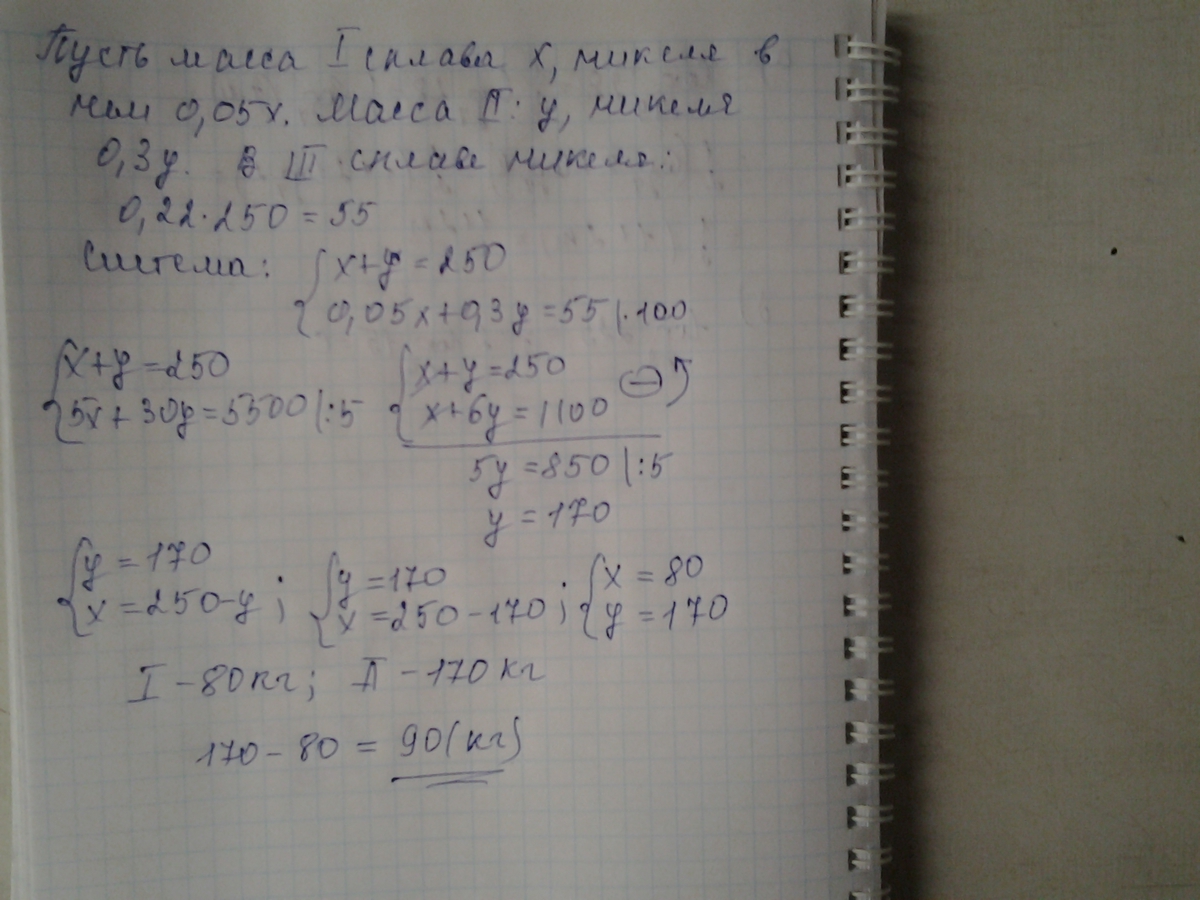 Пусть масса I сплава x, никеля в
нем 0,05x. Масса II: y, никеля
0,3y. В III сплаве никеля:
0,22·250=55
Система: { x+y=250
0,05x+0,3y=55 |·100
{ x+y=250 { x+y=250
5x+30y=5500 |:5 x+6y=1100 (−)
5y=850 |:5
y=170
{ y=170 { y=170 { x=80
x=250-y; x=250-170; y=170
I-80кг; II-170кг
170-80=90(кг)